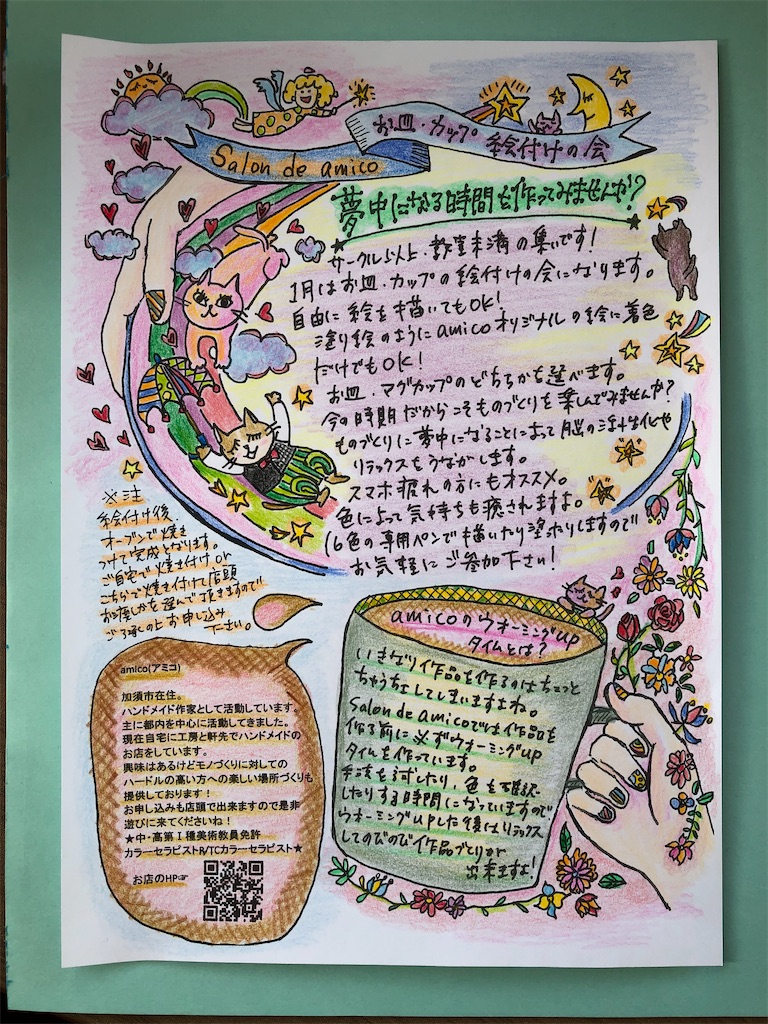 Salon de amico
お皿・カップ
絵付けの会
夢中になる時間を作ってみませんか?
サークル以上・教室未満の集いです!
1月はお皿・カップの絵付けの会になります。
自由に絵を描いてもOK!
塗り絵のようにamicoオリジナルの絵に着色
だけでもOK!
お皿・マグカップのどちらかを選べます。
今の時期だからこそものづくりを楽しんでみませんか?
ものづくりに夢中になることによって脳の活性化や
リラックスをうながします。
スマホ疲れの方にもオススメ。
色によって気持ちも癒されますよ。
16色の専用ペンで描いたり塗ったりしますので
お気軽にご参加下さい!
※注
絵付け後、
オーブンで焼き
つけて完成となります。
ご自宅で焼き付けor
こちらで焼き付けて店頭
お渡しかを選んで頂きますので
ご了承の上お申し込み
下さい。
amico(アミコ)
加須市在住。
ハンドメイド作家として活動しています。
主に都内を中心に活動してきました。
現在自宅に工房と軒先でハンドメイドの
お店をしています。
興味はあるけどモノづくりに対しての
ハードルの高い方への楽しい場所づくりも
提供しております!
お申し込みも店頭で出来ますので是非
遊びに来てくださいね!
★中・高第Ⅰ種美術教員免許
カラーセラピストR/TCカラーセラピスト★
お店のHP☞
amicoのウオーミングup
タイムとは?
いきなり作品を作るのはちょっと
ちゅうちょしてしまいますよね。
Salon de amicoでは作品を
作る前に必ずウオーミングup
タイムを作っています。
手法を試したり、色を確認
したりする時間になっていますので
ウオーミングupした後はリラックス
してのびのび作品づくりが
出来ますよ!